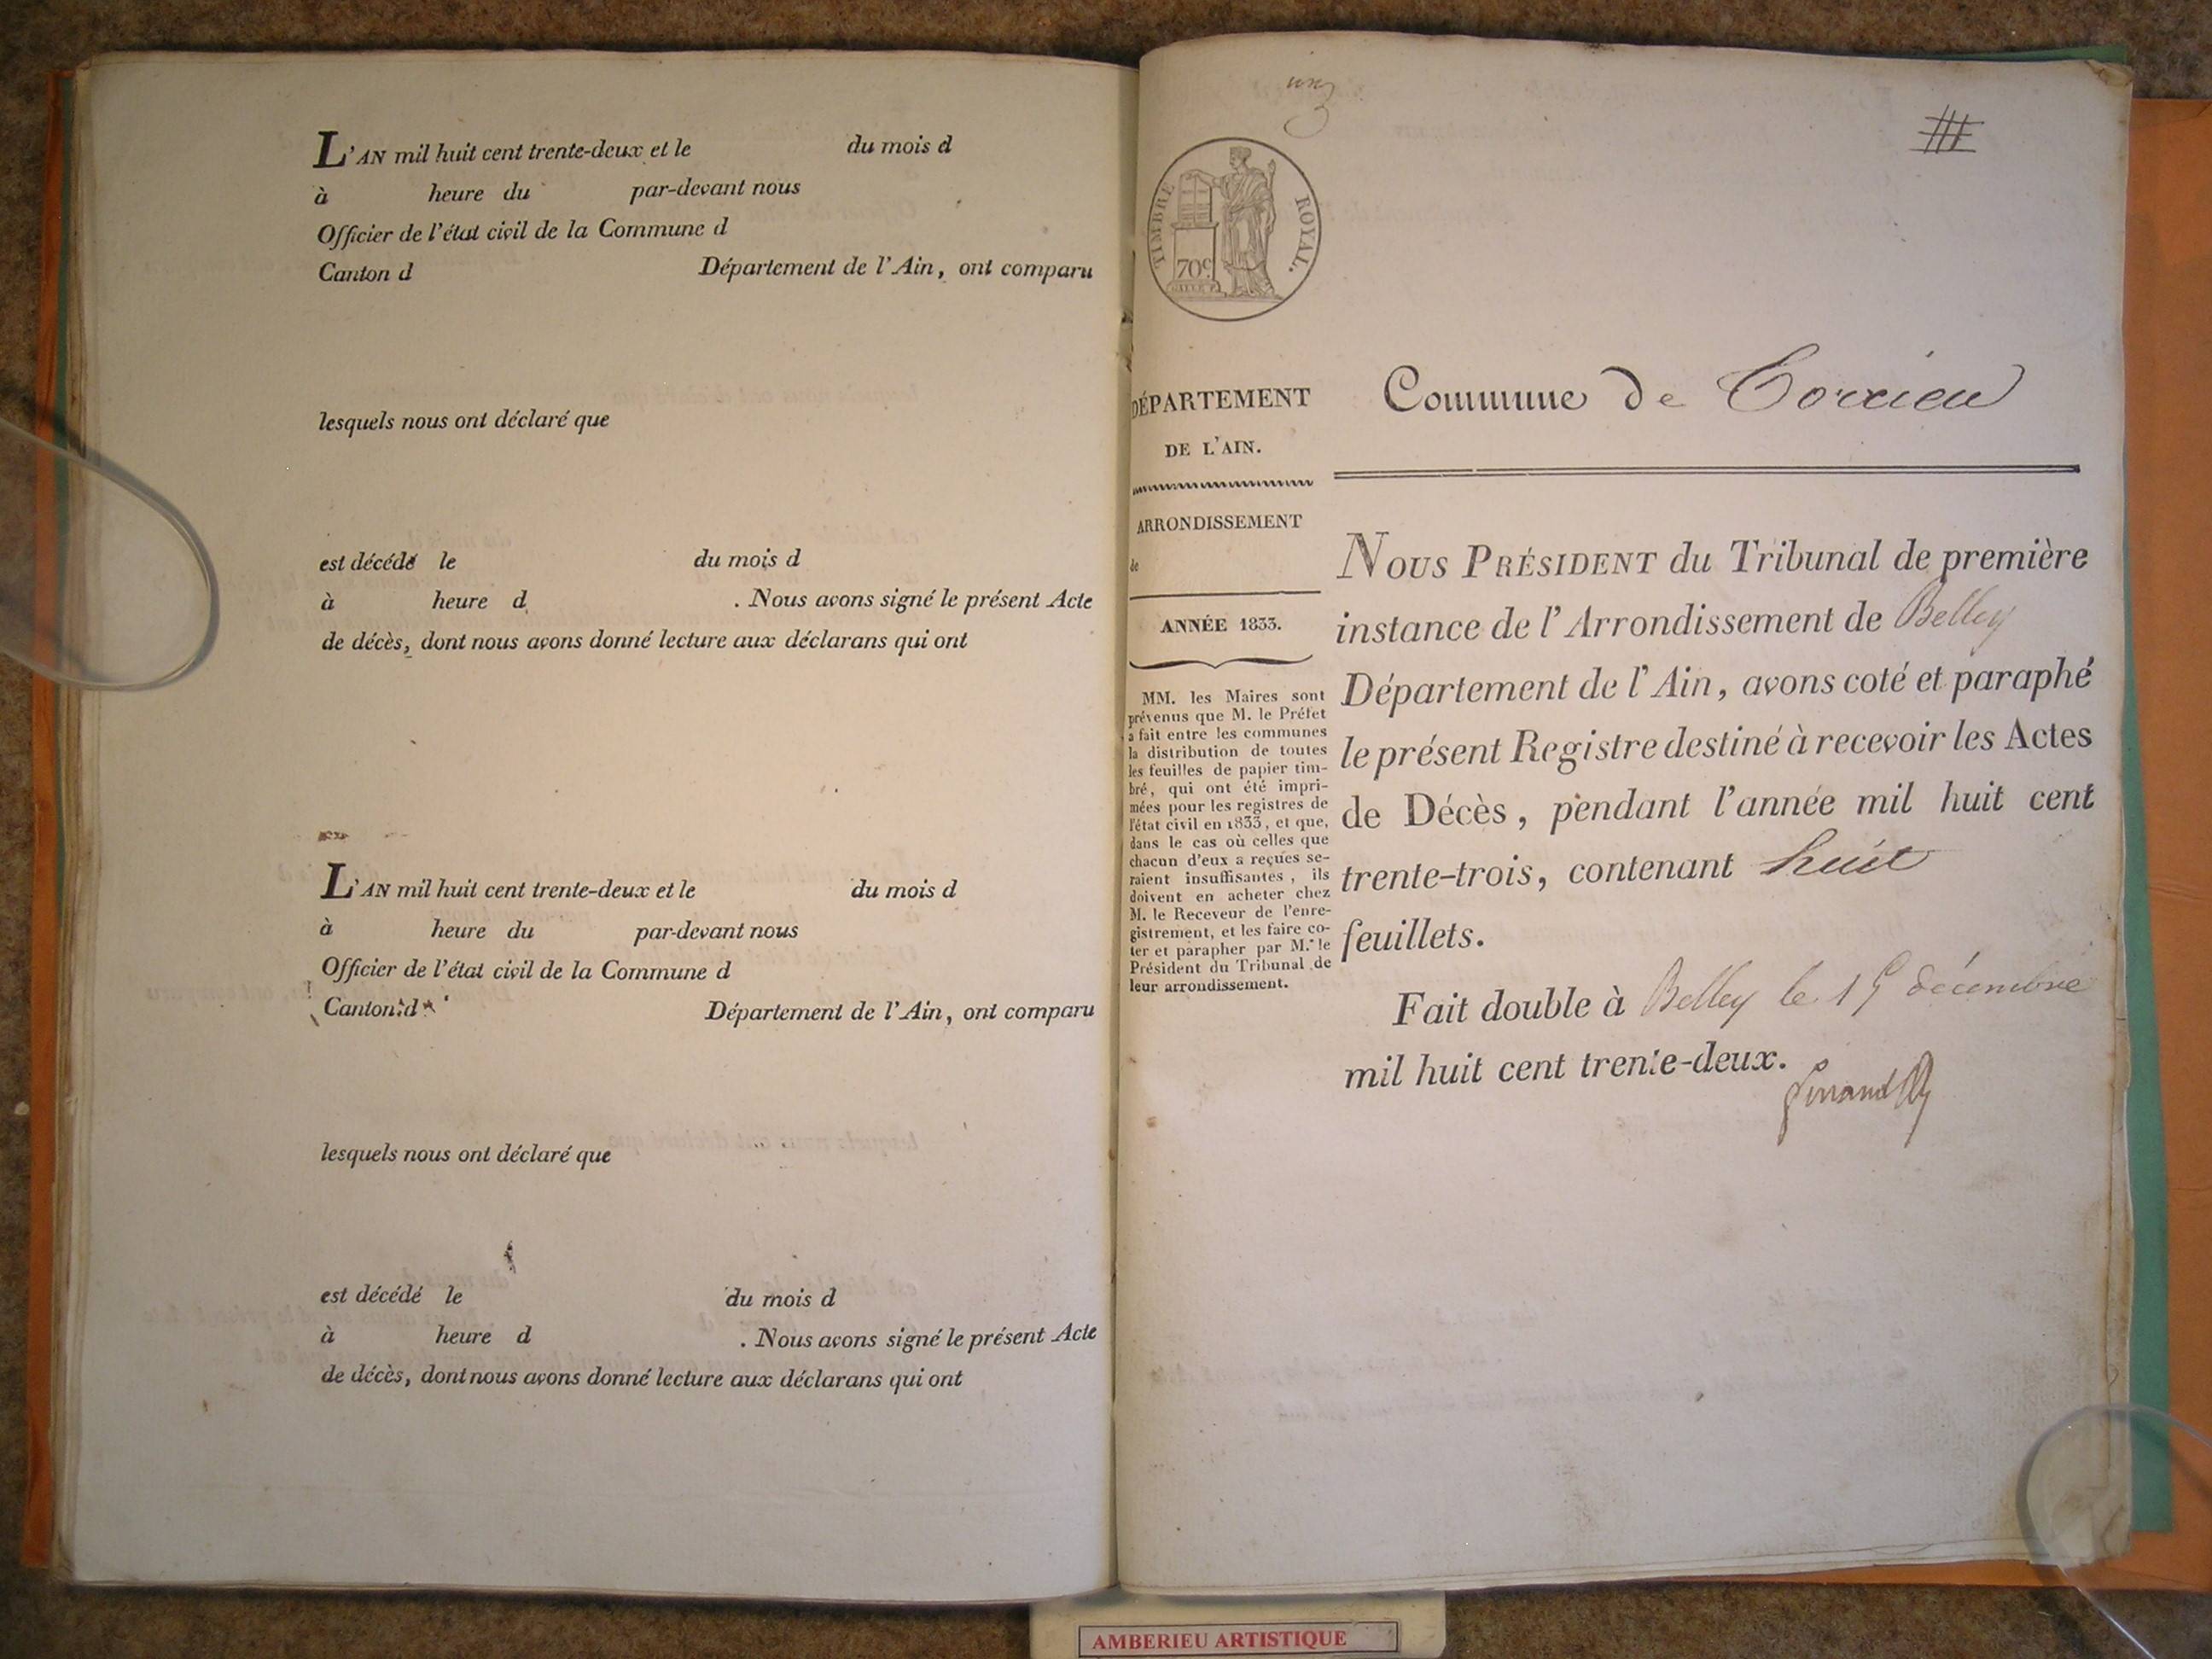 L'AN mil huit cent trente-deux et le du mois d
à heure du par-devant nous
Officier de l'état civil de la Commune d
Canton d Département de l'Ain, ont comparu
lesquels nous ont déclaré que
est décédé le du mois d
à heure d . Nous avons signé le présent Acte
de décès, dont nous avons donné lecture aux déclarans qui ont
L'AN mil huit cent trente-deux et le du mois d
à heure du par-devant nous
Officier de l'état civil de la Commune d
Canton d Département de l'Ain, ont comparu
lesquels nous ont déclaré que
est décédé le du mois d
à heure d . Nous avons signé le présent Acte
de décès, dont nous avons donné lecture aux déclarans qui ont
un
TIMBRE ROYAL.
70c
DÉPARTEMENT
DE L'AIN.
ARRONDISSEMENT
de
ANNÉE 1833.
MM. les Maires sont
prévenus que M. le Préfet
a fait entre les communes
la distribution de toutes
les feuilles de papier tim-
bré, qui ont été impri-
mées pour les registres de
l'état civil en 1833, et que,
dans le cas où celles que
chacun d'eux a reçues se-
raient insuffisantes, ils
doivent en acheter chez
M. le Receveur de l'enre-
gistrement, et les faire co-
ter et parapher par M. le
Président du Tribunal de
leur arrondissement.
Commune de Torcieu
NOUS PRÉSIDENT du Tribunal de première
instance de l'Arrondissement de Belley
Département de l'Ain, avons coté et paraphé
le présent Registre destiné à recevoir les Actes
de Décès, pendant l'année mil huit cent
trente-trois, contenant huit
feuillets.
Fait double à Belley le 15 décembre
mil huit cent trente-deux.
AMBERIEU ARTISTIQUE